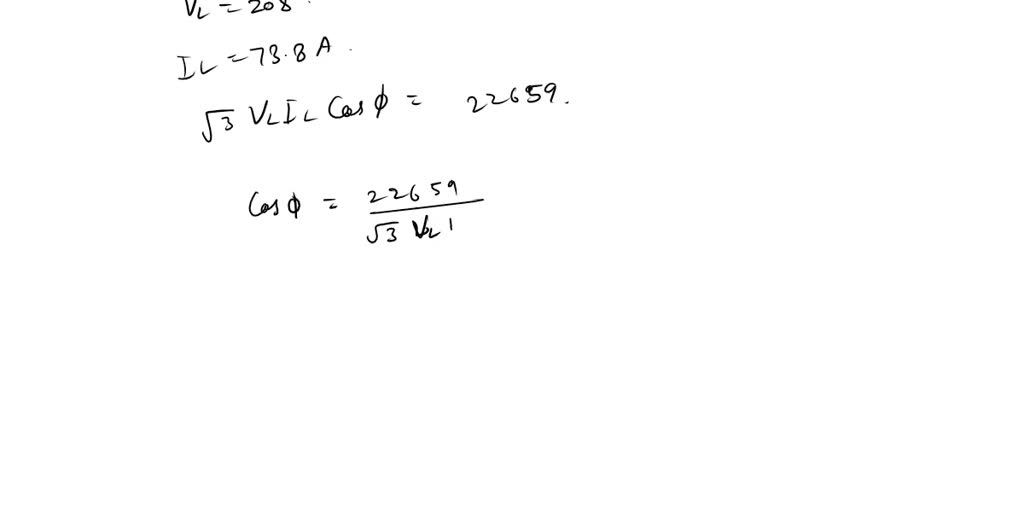 VL = 208.
IL = 73.8 A.
√3 VL IL Cos φ = 22659.
Cos φ = 22659 / √3 VL I